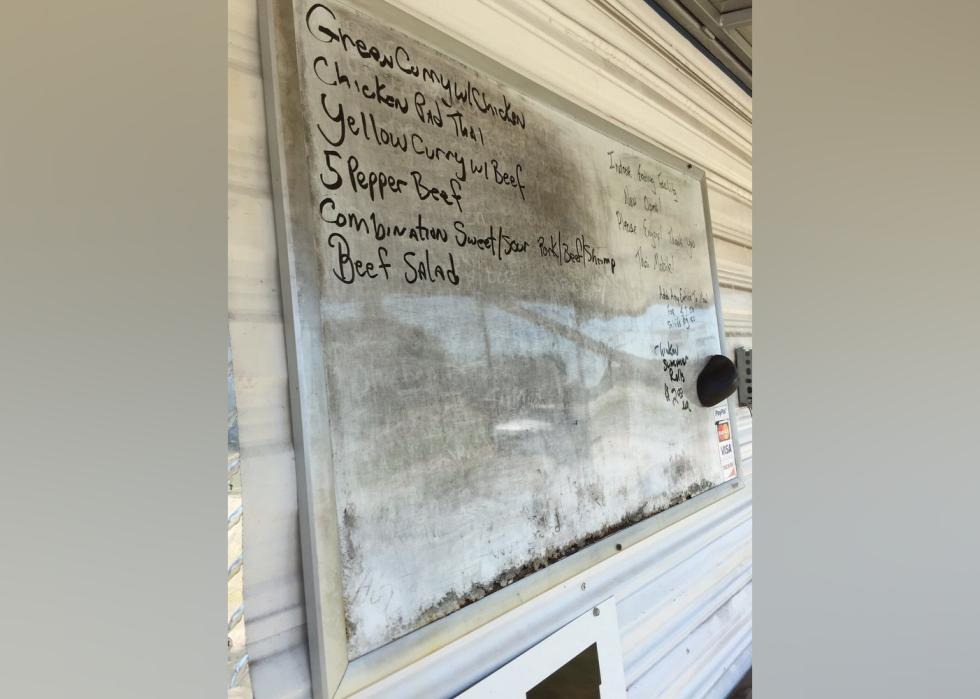 Green Curry w/ Chicken
Chicken Pad Thai
Yellow Curry w/ Beef
5 Pepper Beef
Combination Sweet/Sour Pork/Beef/Shrimp
Beef Salad
Indoor Eating Facility
Now Open!
Please Enjoy! Thank You
Thai Mobile!
Chicken
Summer
Rolls
PayPal
VISA